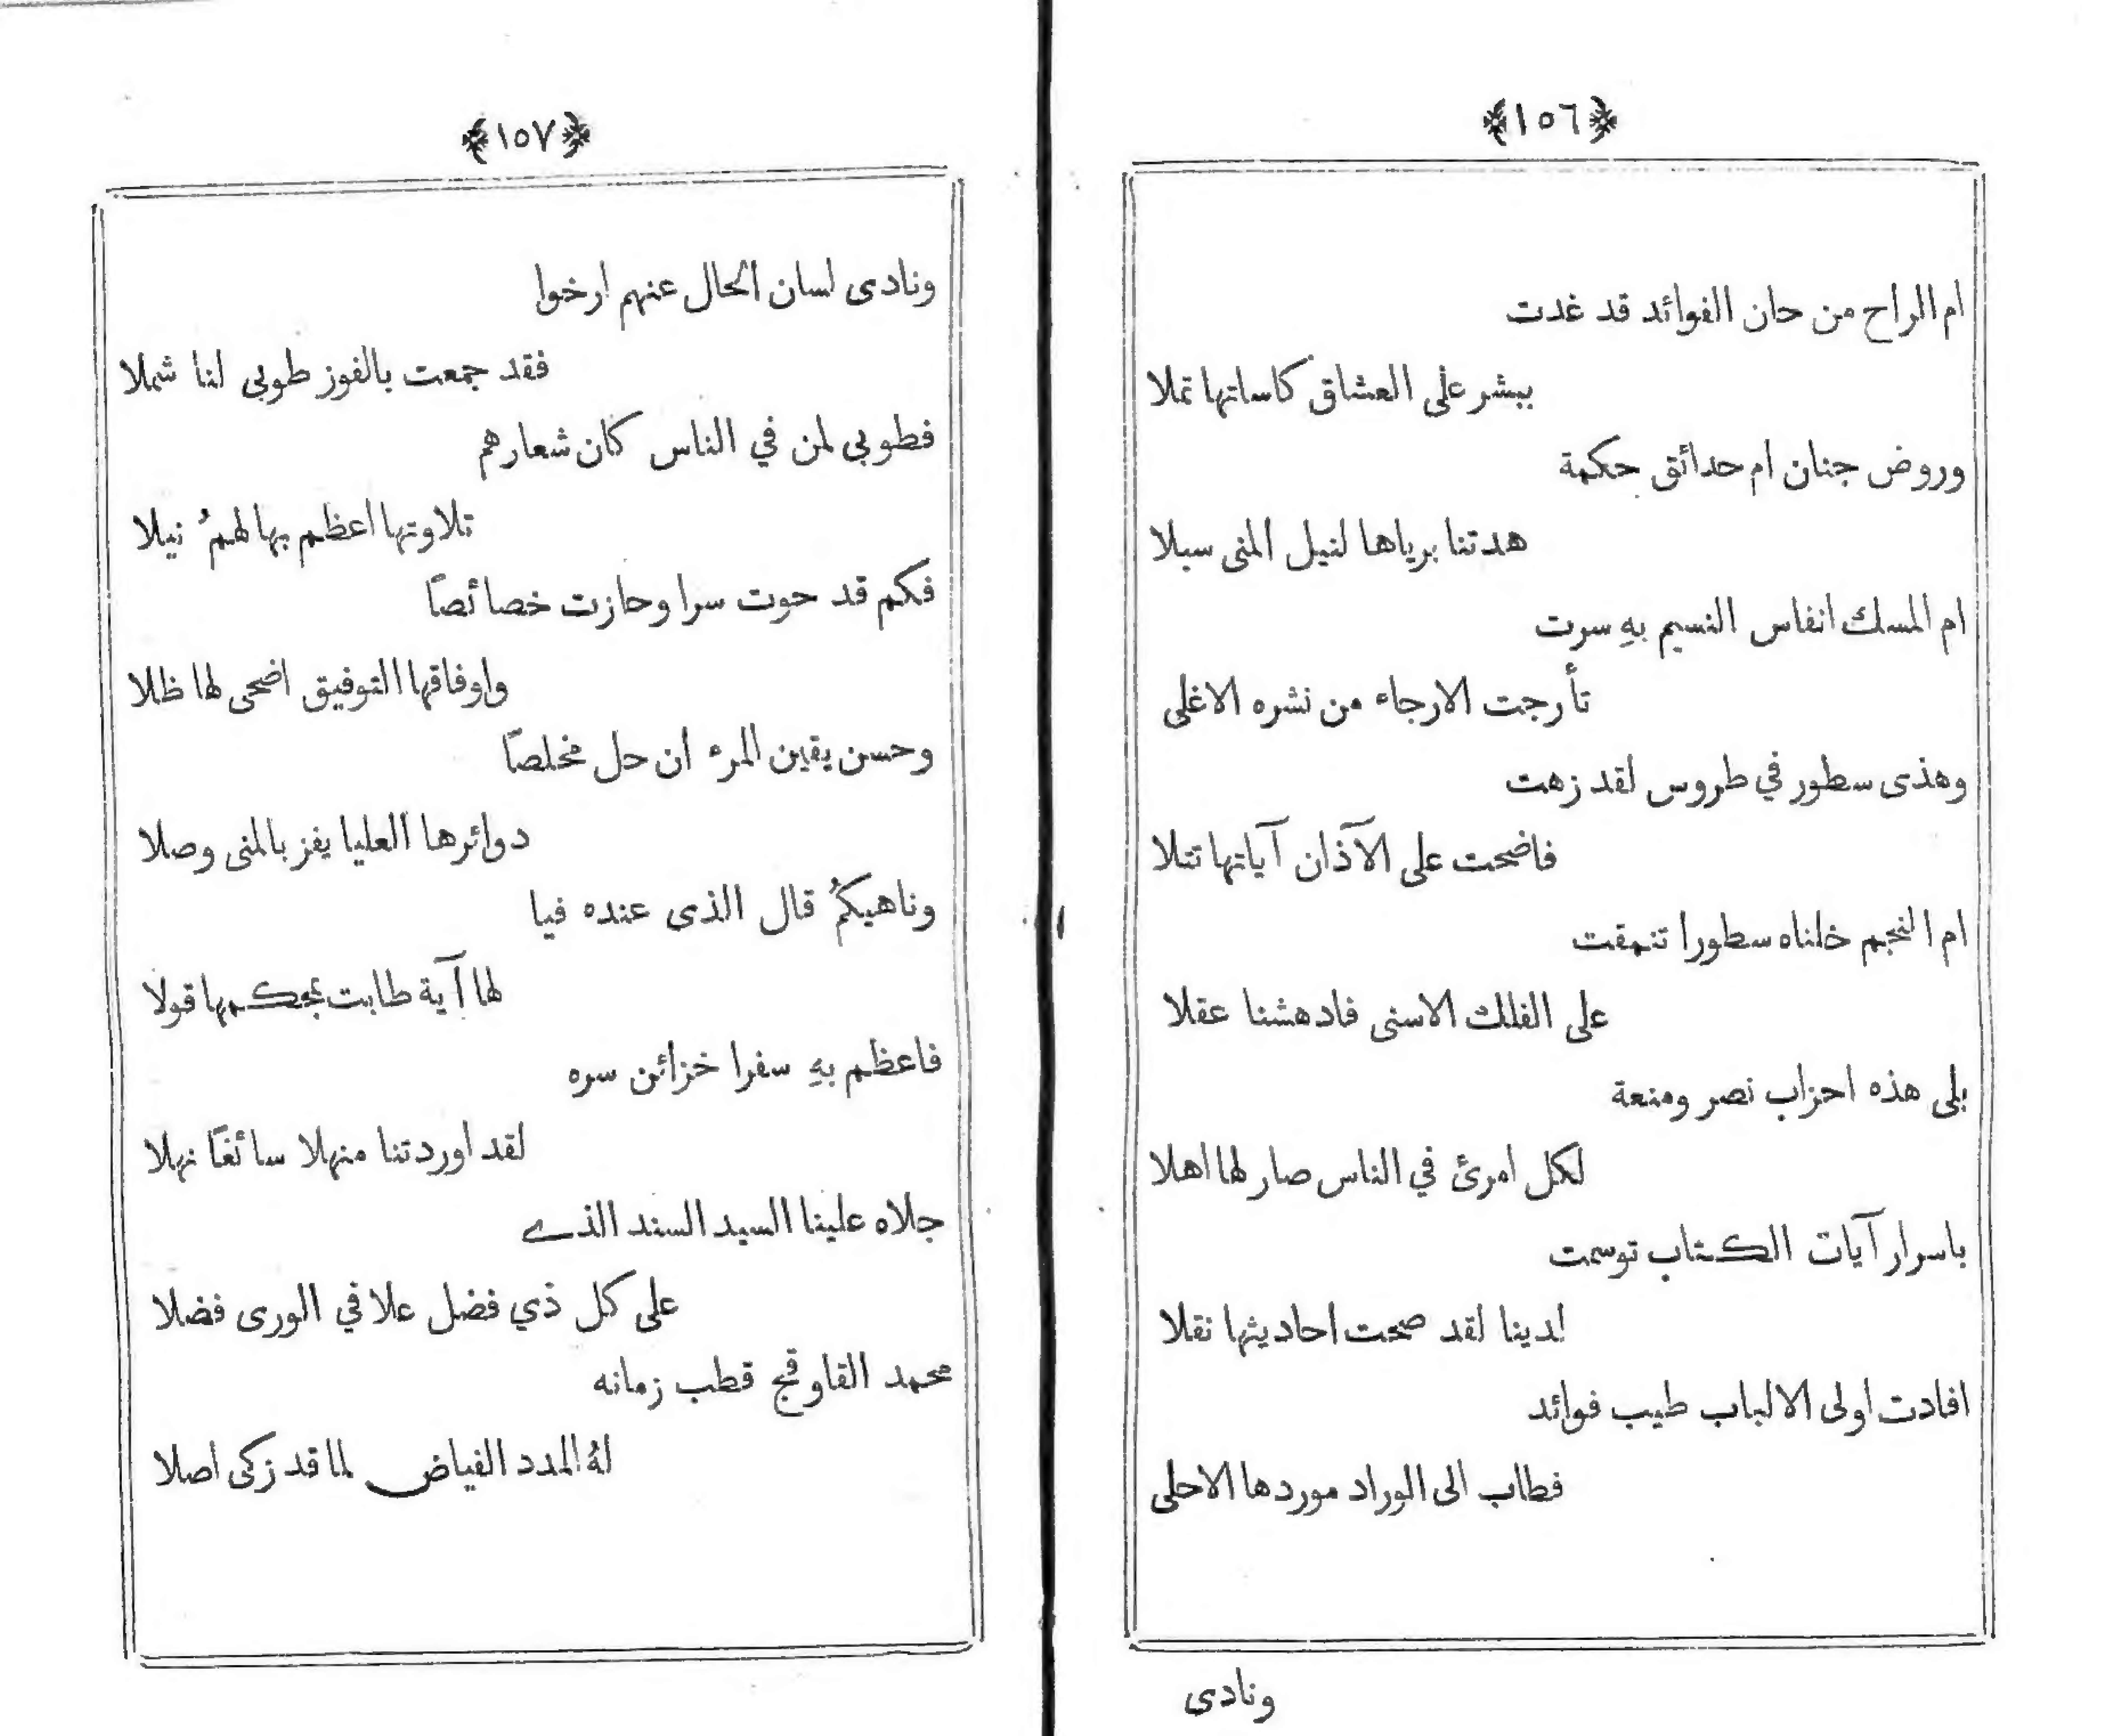 ﴿١٥٦﴾
ام الراح من حان الفوائد قد غدت
ببشر على العشاق كاساتها تملا
وروض جنان ام حدائق حكمة
هدتنا برياها لنيل المنى سبلا
ام المسك انفاس النسيم بهِ سرت
تأرجت الارجاء من نشره الاغلى
وهذى سطور في طروس لقد زهت
فاضحت على الآذان آياتها تتلا
ام النجم خلناه سطورا تنمقت
على الفلك الاسنى فادهشنا عقلا
بلى هذه احزاب نصر ومنعة
لكل امرئ في الناس صار لها اهلا
باسرار آيات الكتاب توسمت
لدينا لقد صحت احاديثها نقلا
افادت اولى الالباب طيب فوائد
فطاب الى الوراد موردها الاحلى
ونادى
﴿١٥٧﴾
ونادى لسان الحال عنهم ارخوا
فقد جمعت بالفوز طوبى لنا شملا
فطوبى لمن في الناس كان شعارهم
تلاوتها اعظم بها لهمُ نيلا
فكم قد حوت سرا وحازت خصائصاً
واوفاقها التوفيق اضحى لها ظلا
وحسن يقين المرء ان حل مخلصاً
دوائرها العليا يفز بالمنى وصلا
وناهيكمُ قال الذى عنده فيا
لها آية طابت بمحكمها قولا
فاعظم بهِ سفرا خزائن سره
لقد اوردتنا منهلا سائغاً نهلا
جلاه علينا السيد السند الذي
على كل ذي فضل علا في الورى فضلا
محمد القاوقجي قطب زمانه
لهُ المدد الفياض لما قد زكى اصلا